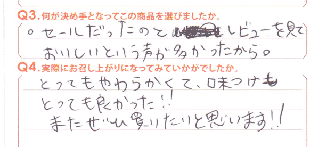 Q3.何が決め手となってこの商品を選びましたか。
。セールだったのと レビューを見て
おいしいという声が多かったから。
Q4.実際にお召し上がりになってみていかがでしたか。
とってもやわらかくて、味つけも
とっても良かった!!
またぜひ買いたいと思います!!